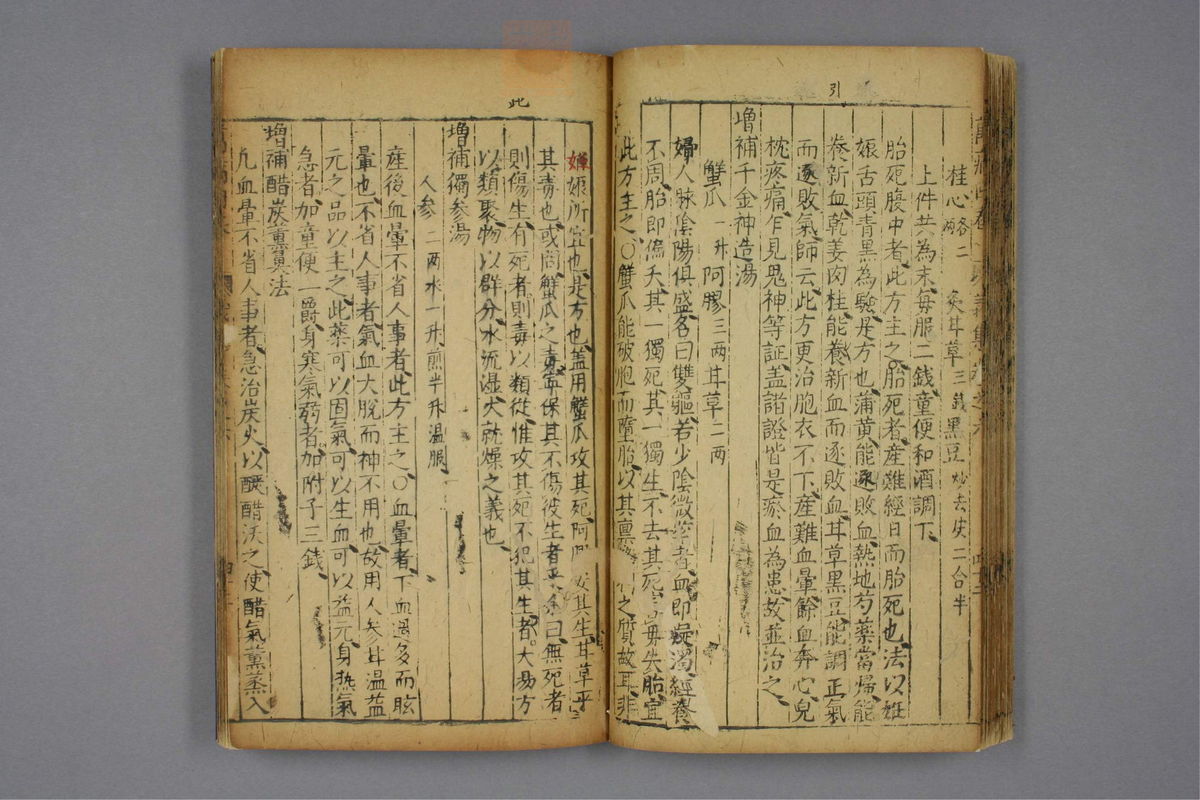 引
桂心各二兩 炙甘草三錢黑豆炒去皮二合半
上件共為末每服二錢童便和酒調下
胎死腹中者此方主之胎死者產難經日而胎死也法以妊
娠舌頭青黑為驗是方也蒲黃能逐敗血熱地芍藥當歸能
養新血乾姜肉桂能養新血而逐敗血甘草黑豆能調正氣
而逐敗氣師云此方更治胞衣不下產難血暈餘血奔心兒
枕疼痛乍見鬼神等証盖諸證皆是瘀血為患故並治之
增補千金神造湯
蟹爪一升阿膠三兩甘草二兩
婦人脉陰陽俱盛名曰雙軀若少陰微緊者血即凝濁經養
不周胎即偏夭其一獨死其一獨生不去其死害毋失胎宜
此方主之○蟹爪能破胞而墮胎以其禀 之質故耳非
此
妊娠所宜也是方也盖用蟹爪攻其死阿 安其生甘草平
其毒也或問蟹爪之毒寧保其不傷彼生者乎余曰無死者
則傷生有死者則毒以類從惟攻其死不犯其生者大易方
以類聚物以群分水流濕火就燥之義也
增補獨參湯
人參二兩水一升煎半升温服
產後血暈不省人事者此方主之○血暈者下血過多而眩
暈也不省人事者氣血大脫而神不用也故用人參甘温益
元之品以主之此藥可以固氣可以生血可以益元身熱氣
急者加童便一爵身寒氣弱者加附子三錢
增補醋炭薰法
凡血暈不省人事者急治炭火以釅醋沃之使醋氣薰蒸入